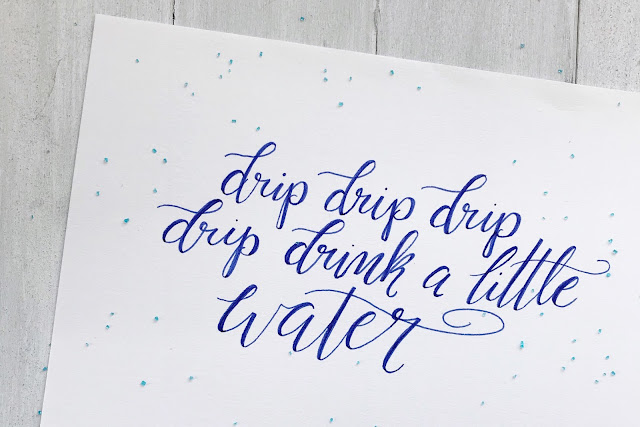 drip drip drip
drip drink a little
water